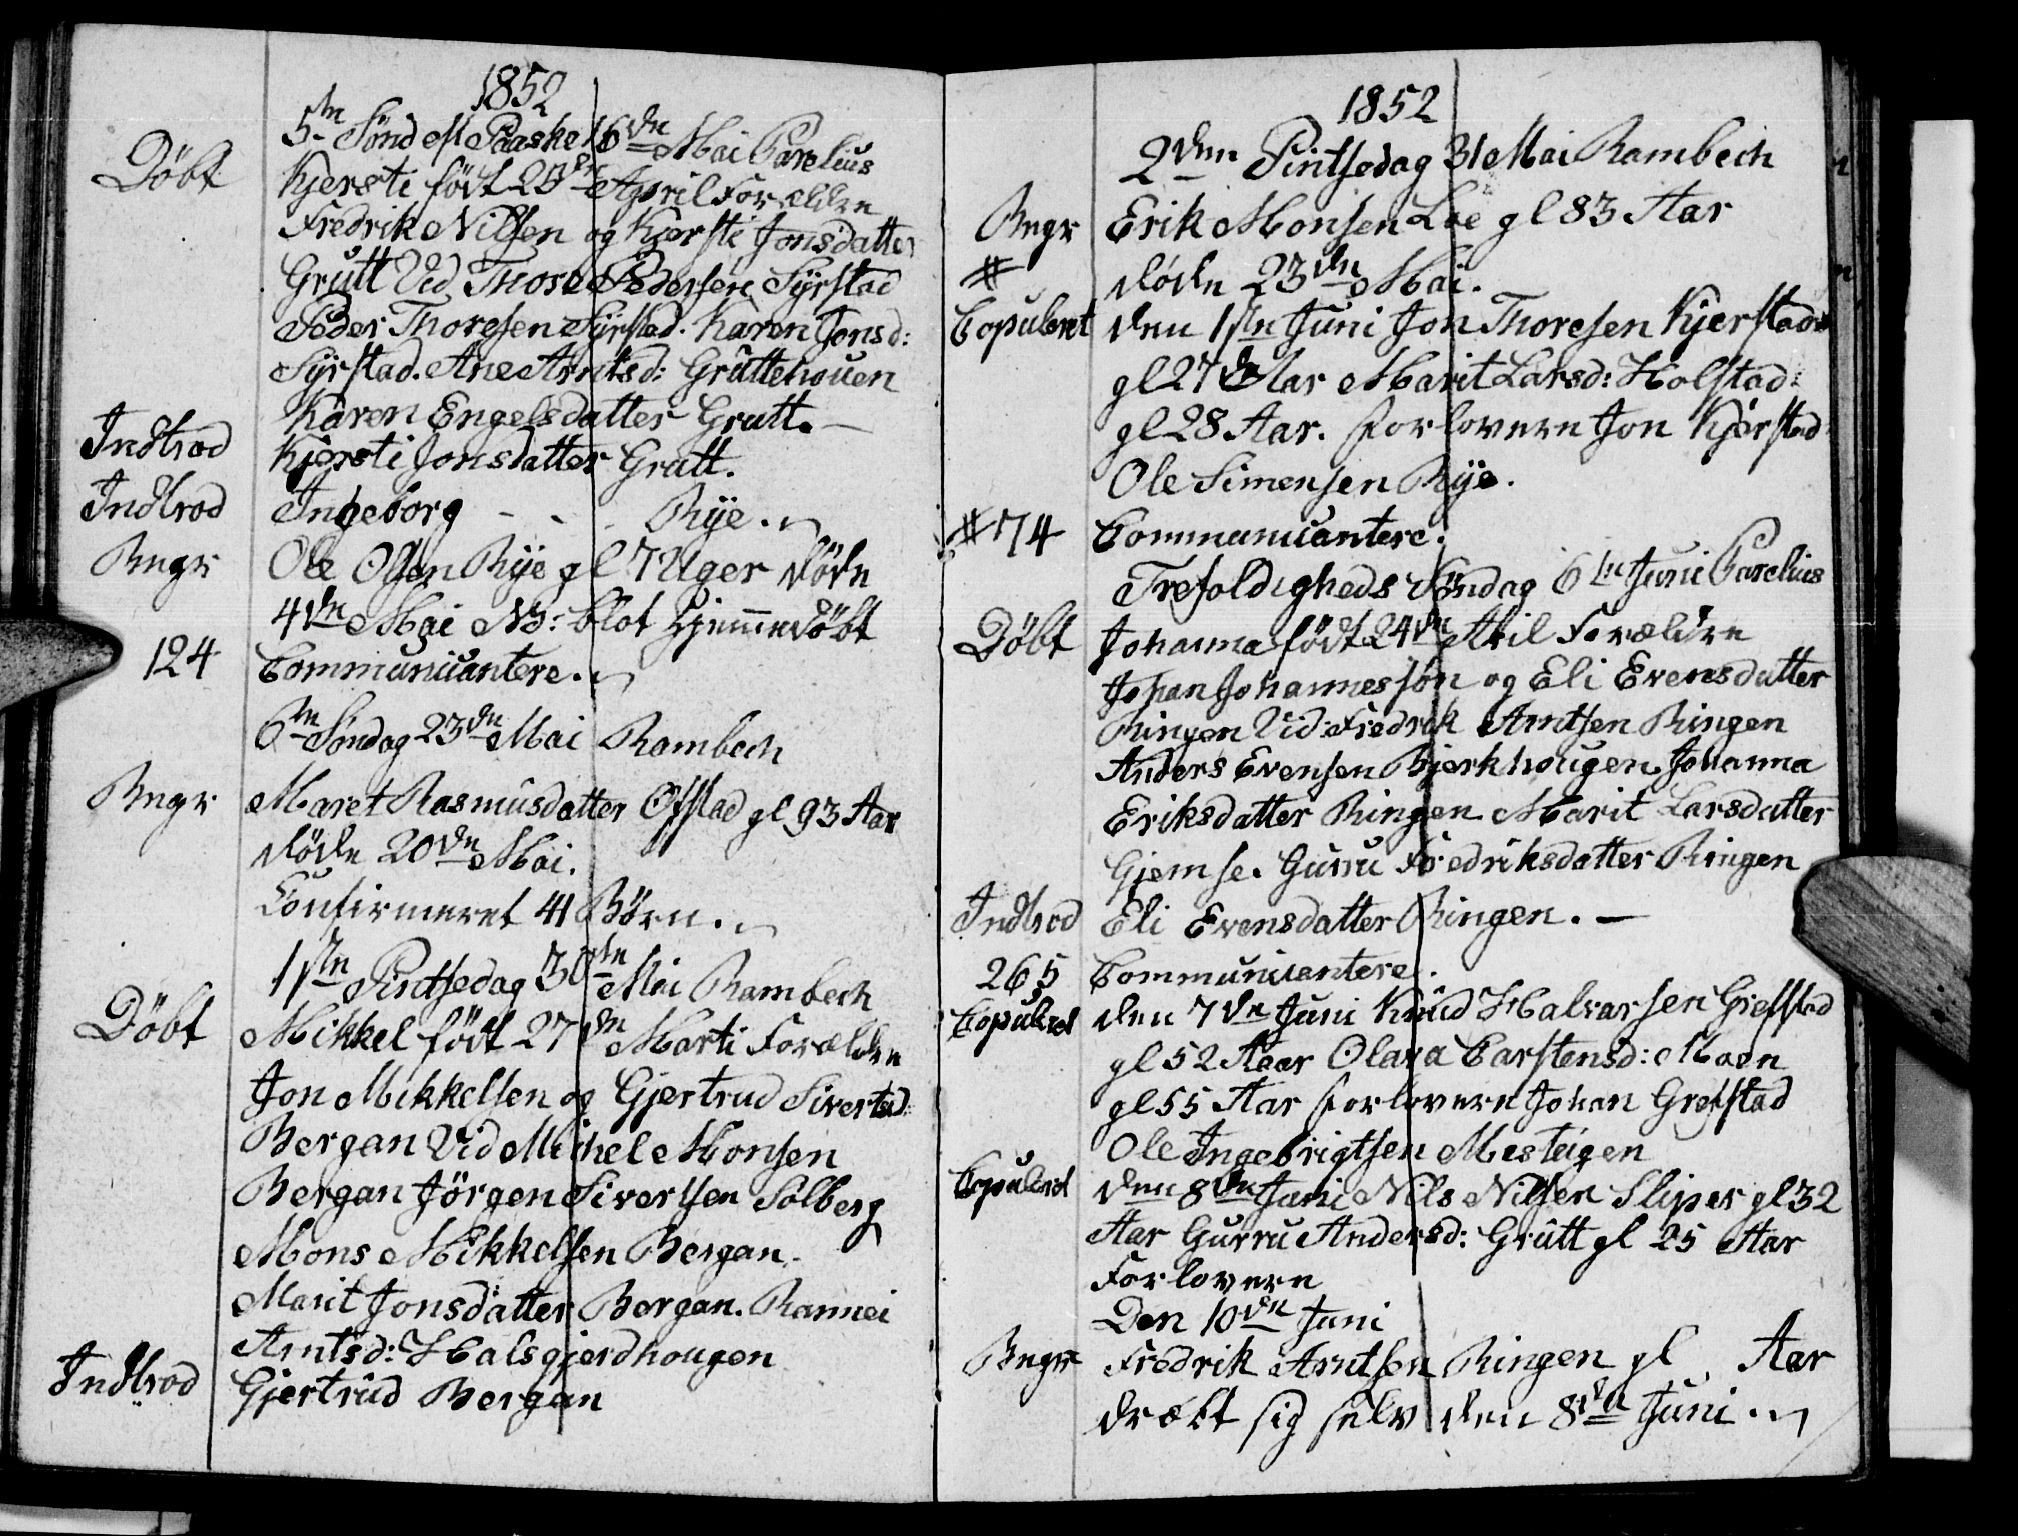 1852
5te Sönd e Paaske 16de Mai Parelius
Döbt Kjersti födt 25de April Forældre
Fredrik Nilsen og Kjersti Jonsdatter
Grutt Vid Thore Pedersen Syrstad
Peder Thoresen Syrstad. Karen Jonsd:
Syrstad. Ane Arntsd: Gruttehouen
Karen Engelsdatter Grutt. —
Indtrod Kjersti Jonsdatter Grutt.
Indtrod Ingeborg - - - Rye.
Begr Ole Olsen Rye gl 7 Uger döde
4de Mai NB: blot Hjemmedöbt
124 Communicantere.
6te Söndag 23de Mai Rambech
Begr Maret Rasmusdatter Ofstad gl 93 Aar
döde 20de Mai.
Confirmeret 41 Börn.
1ste Pintsedag 30te Mai Rambech
Döbt Mikkel födt 27de Marti Forældre
Jon Mikkelsen og Gjertrud Sivertsd:
Bergan Vid Mikkel Monsen
Bergan Jörgen Sivertsen Solberg
Mons Mikkelsen Bergan.
Marit Jonsdatter Bergan. Rannei
Arntsd: Halsgjerdhougen
Indtrod Gjertrud Bergan
1852
2den Pintsedag 31 Mai Rambech
Begr Erik Monsen Loe gl 83 Aar
# döde 23de Mai.
Copuleret den 1ste Juni Jon Thoresen Kjerstad
gl 27 Aar Marit Larsd: Holstad:
gl 28 Aar. Forlovere Jon Kjerstad
Ole Simensen Rye.
# 74 Communicantere.
Trefoldigheds Söndag 6te Juni Parelius
Döbt Johanna födt 24de Aril Forældre
Johan Johannessön og Eli Evensdatter
Ringen Vid: Fredrik Arntsen Ringen
Anders Evensen Bjerkhougen. Johanna
Eriksdatter Ringen Marit Larsdatter
Gjemse. Gurru Fredriksdatter Ringen
Indtrod Eli Evensdatter Ringen. —
265 Communicantere.
Copulerd den 7de Juni Knud Halvarsen Grefstad
gl 52 Aaar Olava Carstensd: Moen
gl 55 Aar Forlovere Johan Grefstad
Ole Ingebrigtsen Mesteigen
Copulerd den 8de Juni Nils Nilsen Sliper gl 32
Aar Gurru Andersd: Grutt gl 25 Aar
Forlovere
Den 10de Juni
Begr Fredrik Arntsen Ringen gl Aar
dræbt sig selv den 8de Juni.